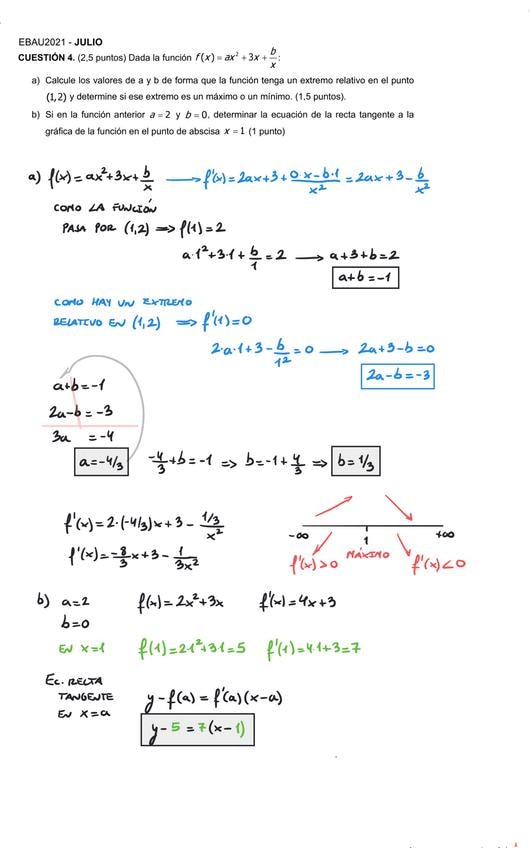 EBAU2021 - JULIO
CUESTIÓN 4. (2,5 puntos) Dada la función f(x) = ax² + 3x + b/x :
a) Calcule los valores de a y b de forma que la función tenga un extremo relativo en el punto
(1,2) y determine si ese extremo es un máximo o un mínimo. (1,5 puntos).
b) Si en la función anterior a = 2 y b = 0, determinar la ecuación de la recta tangente a la
gráfica de la función en el punto de abscisa x = 1 (1 punto)
a) f(x) = ax²+3x+b/x → f'(x) = 2ax+3+(0·x-b·1)/x² = 2ax+3-b/x²
COMO LA FUNCIÓN
PASA POR (1,2) ⇒ f(1)=2
a·1²+3·1+b/1=2 → a+3+b=2
a+b=-1
COMO HAY UN EXTREMO
RELATIVO EN (1,2) ⇒ f'(1)=0
2·a·1+3-b/1²=0 → 2a+3-b=0
2a-b=-3
a+b=-1
2a-b=-3
3a =-4
a=-4/3 -4/3+b=-1 ⇒ b=-1+4/3 ⇒ b=1/3
f'(x)=2·(-4/3)x+3-(1/3)/x²
f'(x)=-8/3x+3-1/3x²
-∞ 1 +∞
f'(x)>0 MÁXIMO f'(x)<0
b) a=2 f(x)=2x²+3x f'(x)=4x+3
b=0
EN X=1 f(1)=2·1²+3·1=5 f'(1)=4·1+3=7
EC. RECTA
TANGENTE
EN X=a
y-f(a)=f'(a)(x-a)
y-5=7(x-1)